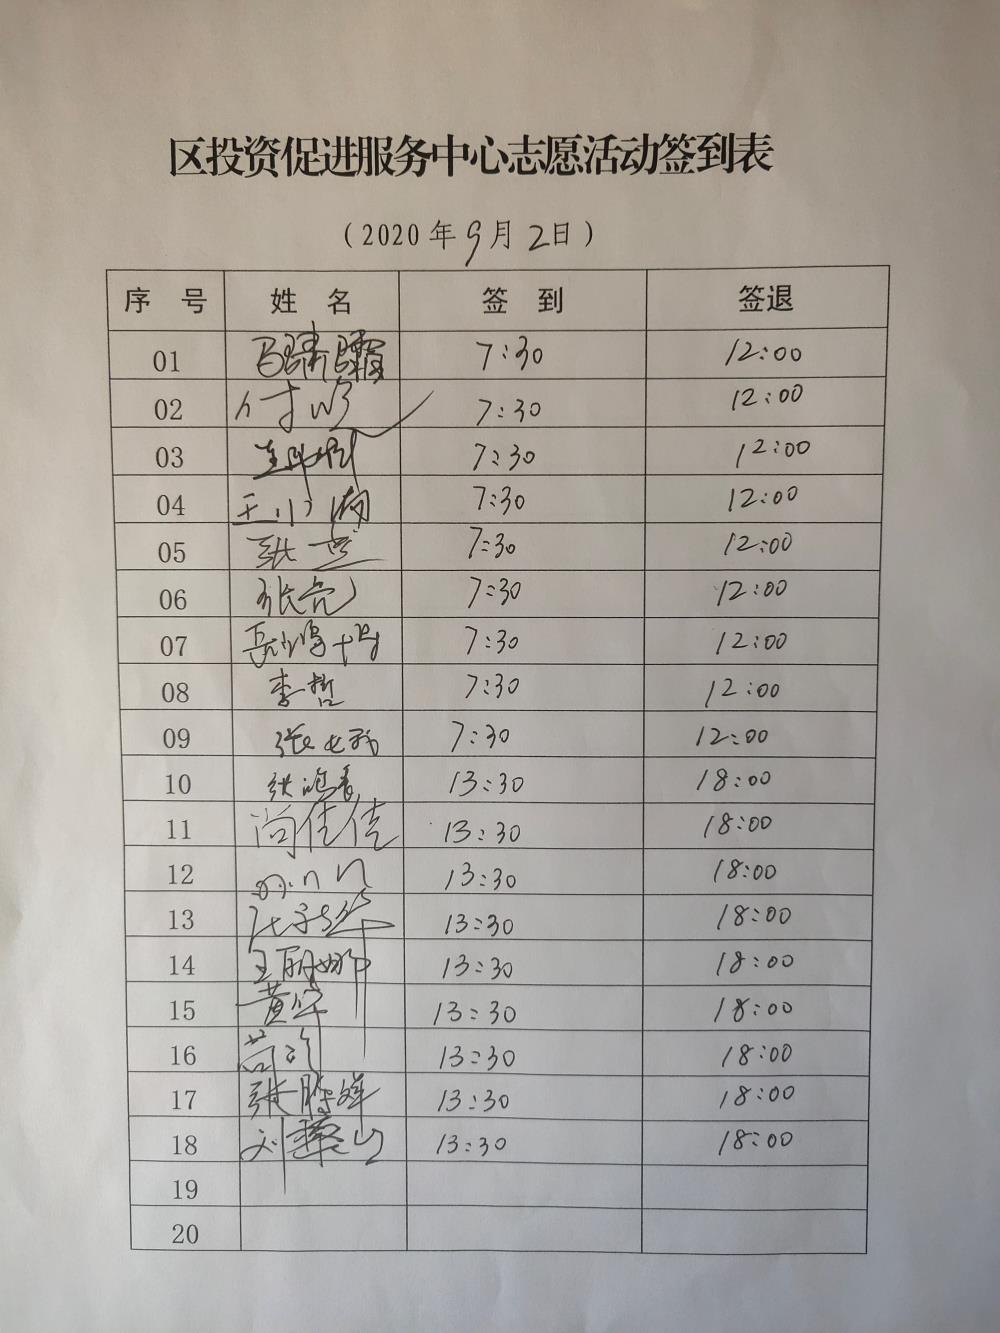 区投资促进服务中心志愿活动签到表
(2020年9月2日)
序 号 姓 名 签 到 签退
01 7:30 12:00
02 7:30 12:00
03 7:30 12:00
04 7:30 12:00
05 7:30 12:00
06 张亮 7:30 12:00
07 7:30 12:00
08 李哲 7:30 12:00
09 7:30 12:00
10 13:30 18:00
11 尚佳佳 13:30 18:00
12 13:30 18:00
13 13:30 18:00
14 王丽娜 13:30 18:00
15 13:30 18:00
16 13:30 18:00
17 13:30 18:00
18 13:30 18:00
19
20